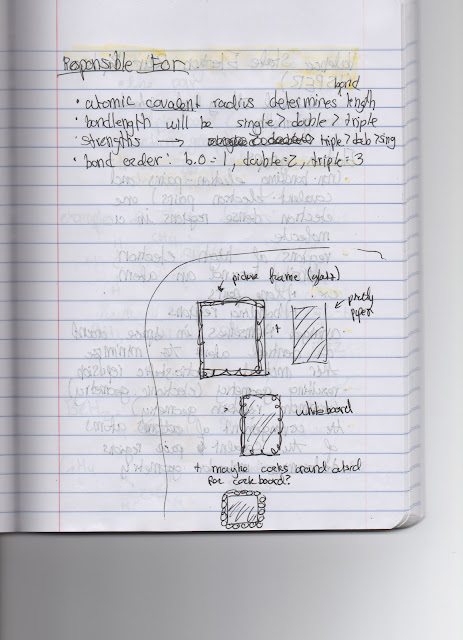 Responsible For
bond
• atomic covalent radius determines length
• bondlength will be single > double > triple
• strengths → triple > dob > sing
• bond order: b.o = 1, double=2, triple=3
picture frame (glass)
pretty
paper
+
whiteboard
+ maybe corks around
for cork board?